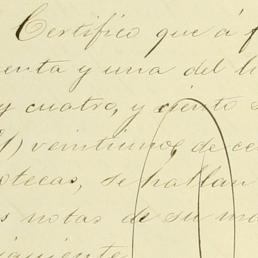 Certifico que á f
enta y una del li
y cuatro, y ciento
veintiuno de ce
otecas, se hallan
s notas de su ma
iguiente